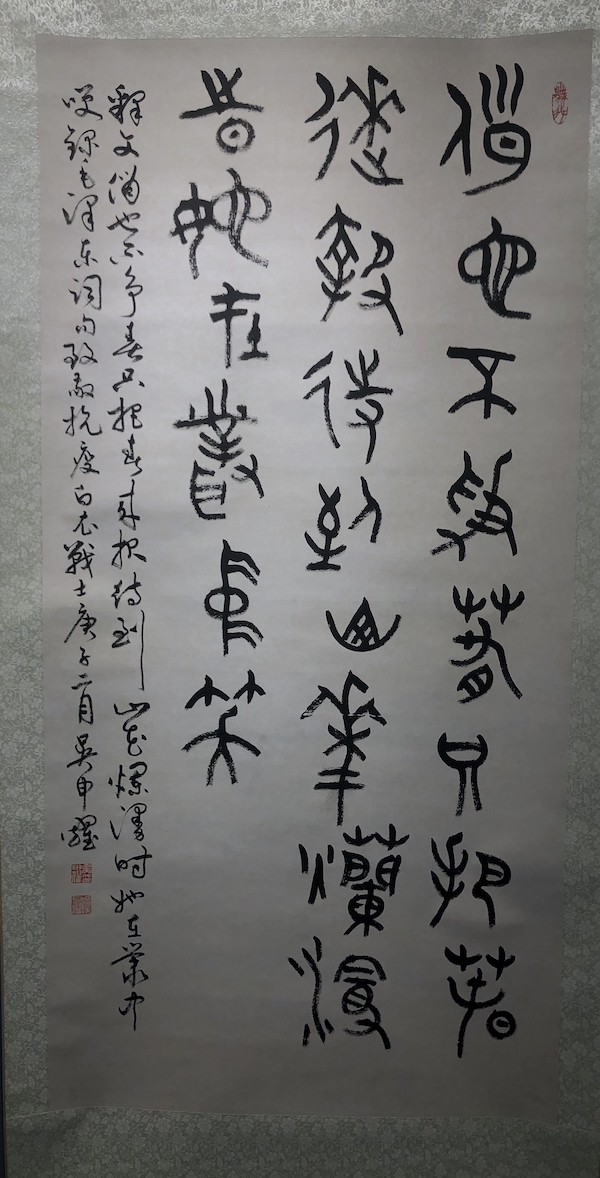 俏也不爭春只把春
來報待到山華爛漫
時她在叢中笑
釋文俏也不争春只把春来报待到山花爛漫时她在叢中
笑錄毛澤东词句致敬抗疫白衣戰士庚子二月吴申耀